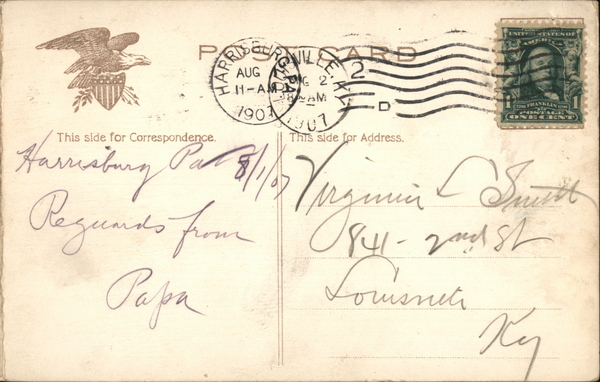 POST CARD
HARRISBURG, PA.
AUG
11-AM
1907
VILLE, KY.
2
8-AM
1907
2
D
1 1
FRANKLIN
POSTAGE
ONE CENT
This side for Correspondence.
This side for Address.
Harrisburg Pa 8/1/07
Reguards from
Papa
Virginia L Smith
841-2nd St
Louisville
Ky